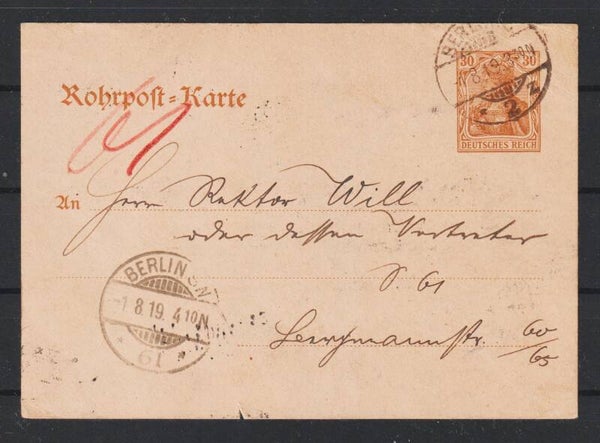 BERLIN
30 30
8.19. 3 N
* 2 z
DEUTSCHES REICH
Rohrpost-Karte
61
An Herrn Rektor Will
oder dessen Vertreter
S. 61
Bergmannstr. 60/65
BERLIN SW
-1.8.19. 4 10 N
* 61 *